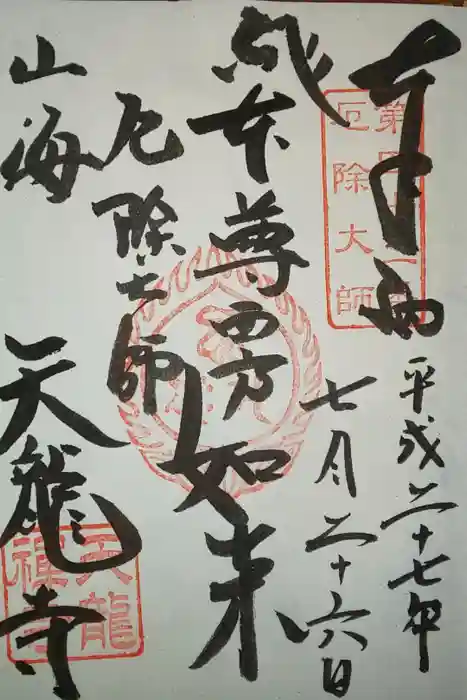 奉拝
平成二十七年
七月二十六日
本尊四方如来
厄除大師
山海
天龍寺
厄除大師
天龍禅寺